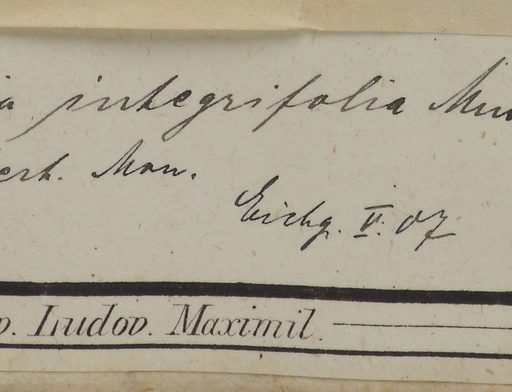 ia integrifolia Mur
erh. Mon.
Eichg. V. 07
o. Ludov. Maximil.